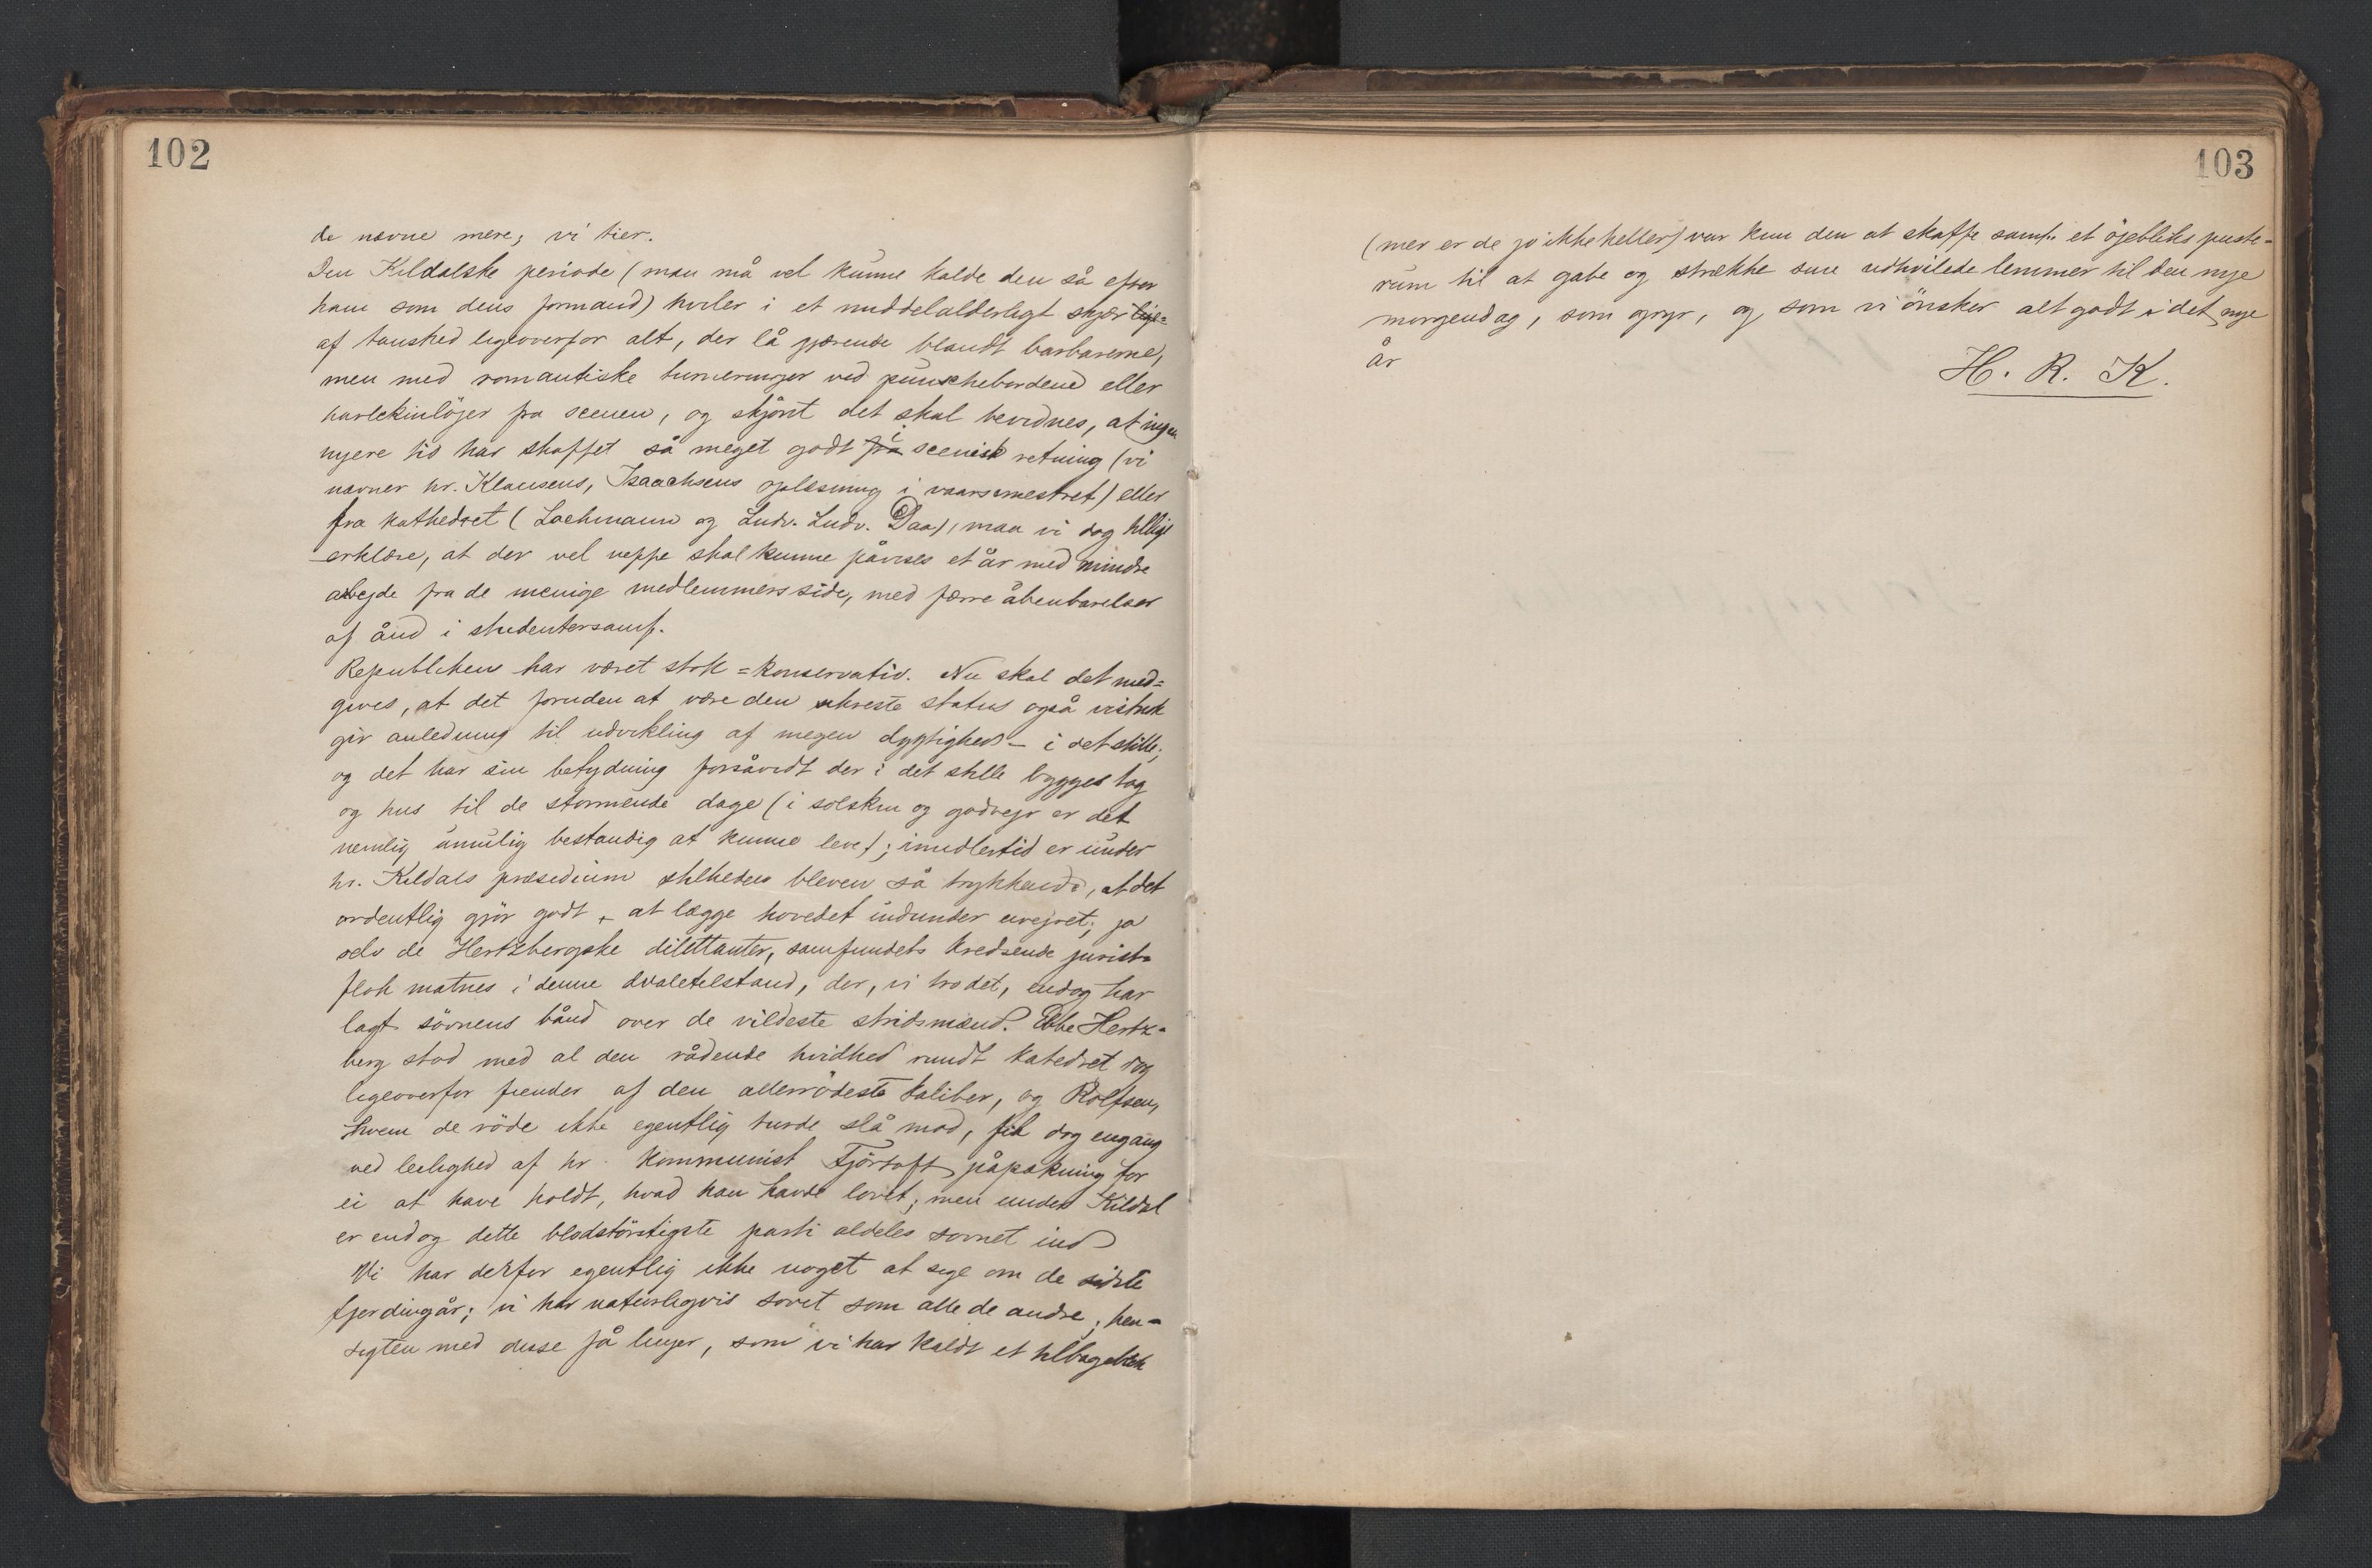 102
de nævne mere; vi tier.
Den Kildalske periode (man må vel kunne kalde den så efter
ham som dens formand) hviler i et middelalderligt skjær lige=
af taushed ligeoverfor alt, der lå gjærende blandt barbarerne,
men med romantiske turneringer ved punschebordene eller
harlekinlöjer fra scenen, og skjönt det skal bevidnes, at ingen
nyere tid har skaffet så meget godt fra i scenisk retning (vi
nævner hr. Klausens, Isaachsens oplæsning i vaarsemestret) eller
fra kathedret (Lochmann og Ludv. Ludv. Daa), maa vi dog tillige
erklære, at der vel neppe skal kunne påvises et år med mindre
arbejde fra de menige medlemmers side, med færre åbenbarelser
af ånd i studentersamf.
Republiken har været stok=konservativ. Nu skal det med=
gives, at det foruden at være den sikreste status også vistnok
gir anledning til udvikling af megen dygtighed – i det stille;
og det har sin betydning forsåvidt der i det stille bygges tag
og hus til de stormende dage (i solskin og godvejr er det
nemlig umulig bestandig at kunne leve); imidlertid er under
hr. Kildals præsidium stilheden bleven så trykkende, at det
ordentlig gjör godt at lægge hovedet indunder uvejret; ja
selv de Hertzbergske dilettanter, samfundets kredsende jurist=
flok matnes i denne dvaletilstand, der, vi tro det, endog har
lagt sövnens bånd over de vildeste stridsmænd. Ebbe Hertz=
berg stod med al den rådende hvidhed rundt katedret dog
ligeoverfor fiender af den allerrödeste kaliber, og Rolfsen,
hvem de röde ikke egentlig turde slå mod, fik dog engang
ved leilighed af hr. kommunist Fjörtoft påpakning for
ei at have holdt, hvad han havde lovet; men under Kildal
er endog dette blodstörstigste parti aldeles sovnet ind
Vi har derfor egentlig ikke noget at sige om de sidste
fjerdingår; vi har naturligvis sovet som alle de andre; hen=
sigten med disse få linjer, som vi har kaldt et tilbageblik
103
(mer er de jo ikke heller) var kun den at skaffe samf. et öjebliks puste=
rum til at gabe og strække sine udhvilede lemmer til den nye
morgendag, som gryr, og som vi önsker alt godt i det nye
år
H. R. K.